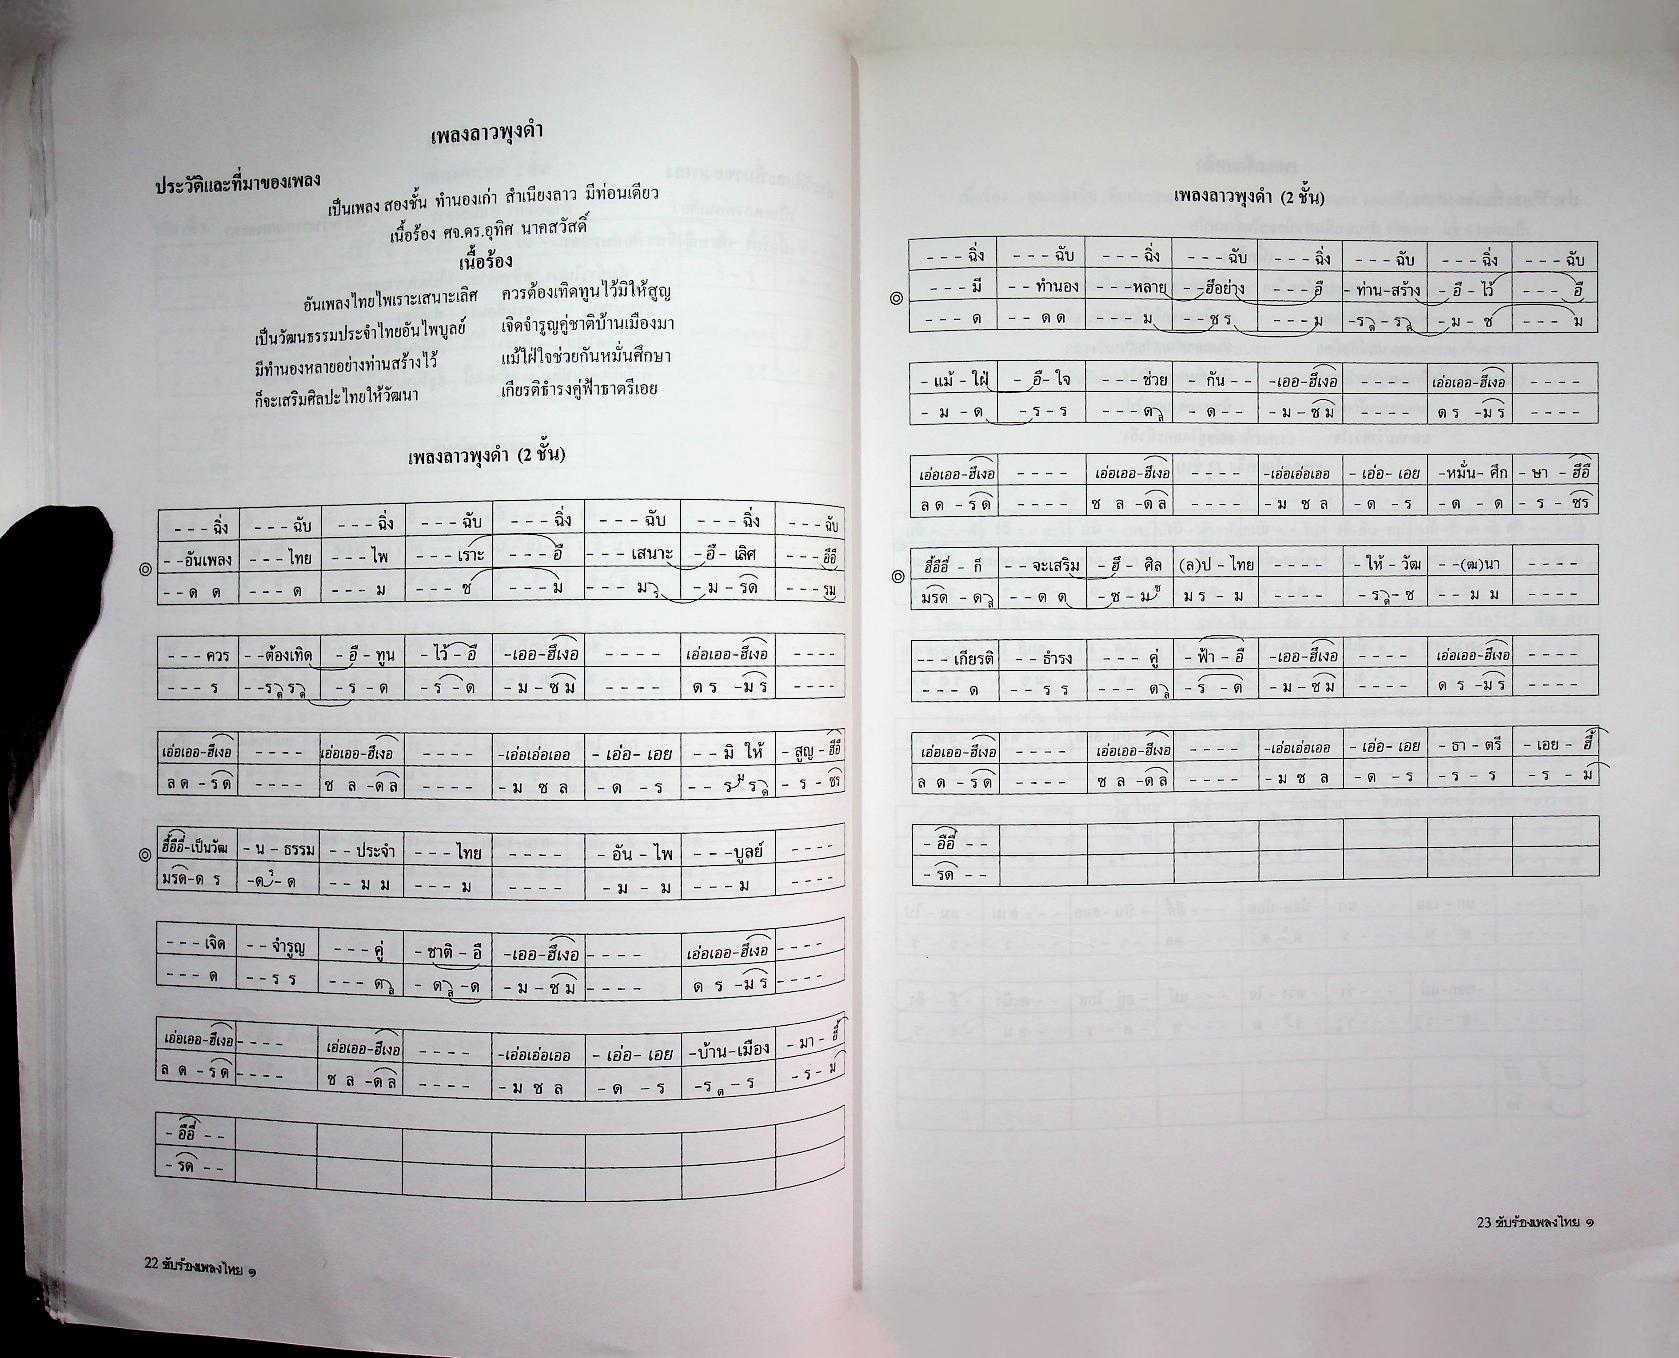 เพลงลาวพุงดำ
ประวัติและที่มาของเพลง
เป็นเพลง สองชั้น ทำนองเก่า สำเนียงลาว มีท่อนเดียว
เนื้อร้อง ศจ.ดร.อุทิศ นาคสวัสดิ์
เนื้อร้อง
อันเพลงไทยไพเราะเสนาะเลิศ ควรต้องเทิดทูนไว้มิให้สูญ
เป็นวัฒนธรรมประจำไทยอันไพบูลย์ เจิดจำรูญคู่ชาติบ้านเมืองมา
มีทำนองหลายอย่างท่านสร้างไว้ แม้ใฝ่ใจช่วยกันหมั่นศึกษา
ก็จะเสริมศิลปะไทยให้วัฒนา เกียรติธำรงคู่ฟ้าธาตรีเอย
เพลงลาวพุงดำ (2 ชั้น)
- - - ฉิ่ง - - - ฉับ - - - ฉิ่ง - - - ฉับ - - - ฉิ่ง - - - ฉับ - - - ฉิ่ง - - - ฉับ
- -อันเพลง - - - ไทย - - - ไพ - - - เราะ - - - อื - - - เสนาะ - อื - เลิศ - - - อือื
- - ด ด - - - ด - - - ม - - - ซ - - - ม - - - มร - ม - รด - - - รม
- - - ควร - -ต้องเทิด - อื - ทูน - ไว้ - อื -เออ-ฮึเงอ - - - - เอ่อเออ-ฮึเงอ - - - -
- - - ร - -รดรด - ร - ด - ร - ด - ม - ซม - - - - ด ร -มร - - - -
เอ่อเออ-ฮึเงอ - - - - เอ่อเออ-ฮึเงอ - - - - -เอ่อเอ่อเออ - เอ่อ- เอย - - มิ ให้ - สูญ - ฮึอื
ล ด - รด - - - - ซ ล -ดล - - - - - ม ซ ล - ด - ร - - รมรด - ร - ซร
ฮื้อือื่-เป็นวัฒ - น - ธรรม - - ประจำ - - - ไทย - - - - - อัน - ไพ - - -บูลย์ - - - -
มรด-ด ร -ดร- ด - - ม ม - - - ม - - - - - ม - ม - - - ม - - - -
- - - เจิด - -จำรูญ - - - คู่ - ชาติ - อื -เออ-ฮึเงอ - - - - เอ่อเออ-ฮึเงอ - - - -
- - - ด - - ร ร - - - ดล - ดล -ด - ม - ซม - - - - ด ร -มร - - - -
เอ่อเออ-ฮึเงอ - - - - เอ่อเออ-ฮึเงอ - - - - -เอ่อเอ่อเออ - เอ่อ- เอย -บ้าน-เมือง - มา - ฮึ้
ล ด - รด - - - - ซ ล -ดล - - - - - ม ซ ล - ด - ร -รด - ร - ร - ม
- อือื่ - -
- รด - -
22 ขับร้องเพลงไทย ๑
เพลงลาวพุงดำ (2 ชั้น)
- - - ฉิ่ง - - - ฉับ - - - ฉิ่ง - - - ฉับ - - - ฉิ่ง - - - ฉับ - - - ฉิ่ง - - - ฉับ
- - - มี - - ทำนอง - - -หลาย - -ฮือย่าง - - - อื - ท่าน-สร้าง - อื - ไว้ - - - อื
- - - ด - - ด ด - - - ม - - ซ ร - - - ม -รด - รด - ม - ซ - - - ม
- แม้ - ใฝ่ - อื- ใจ - - - ช่วย - กัน - - -เออ-ฮึเงอ - - - - เอ่อเออ-ฮึเงอ - - - -
- ม - ด - ร - ร - - - ดล - ด - - - ม - ซม - - - - ด ร -มร - - - -
เอ่อเออ-ฮึเงอ - - - - เอ่อเออ-ฮึเงอ - - - - -เอ่อเอ่อเออ - เอ่อ- เอย -หมั่น- ศึก - ษา - ฮึอื
ล ด - รด - - - - ซ ล -ดล - - - - - ม ซ ล - ด - ร - ด - ด - ร - ซร
ฮื้อือื่ - ก็ - -จะเสริม - ฮึ - ศิล (ล)ป - ไทย - - - - - ให้ - วัฒ - -(ฒ)นา - - - -
มรด - ดล - - ด ด - ซ - มซ ม ร - ม - - - - - รด- ซ - - ม ม - - - -
- - - เกียรติ - - ธำรง - - - คู่ - ฟ้า - อื -เออ-ฮึเงอ - - - - เอ่อเออ-ฮึเงอ - - - -
- - - ด - - ร ร - - - ดล - ร - ด - ม - ซม - - - - ด ร -มร - - - -
เอ่อเออ-ฮึเงอ - - - - เอ่อเออ-ฮึเงอ - - - - -เอ่อเอ่อเออ - เอ่อ- เอย - ธา - ตรี - เอย - ฮึ้
ล ด - รด - - - - ซ ล -ดล - - - - - ม ซ ล - ด - ร - ร - ร - ร - ม
- อือื่ - -
- รด - -
23 ขับร้องเพลงไทย ๑